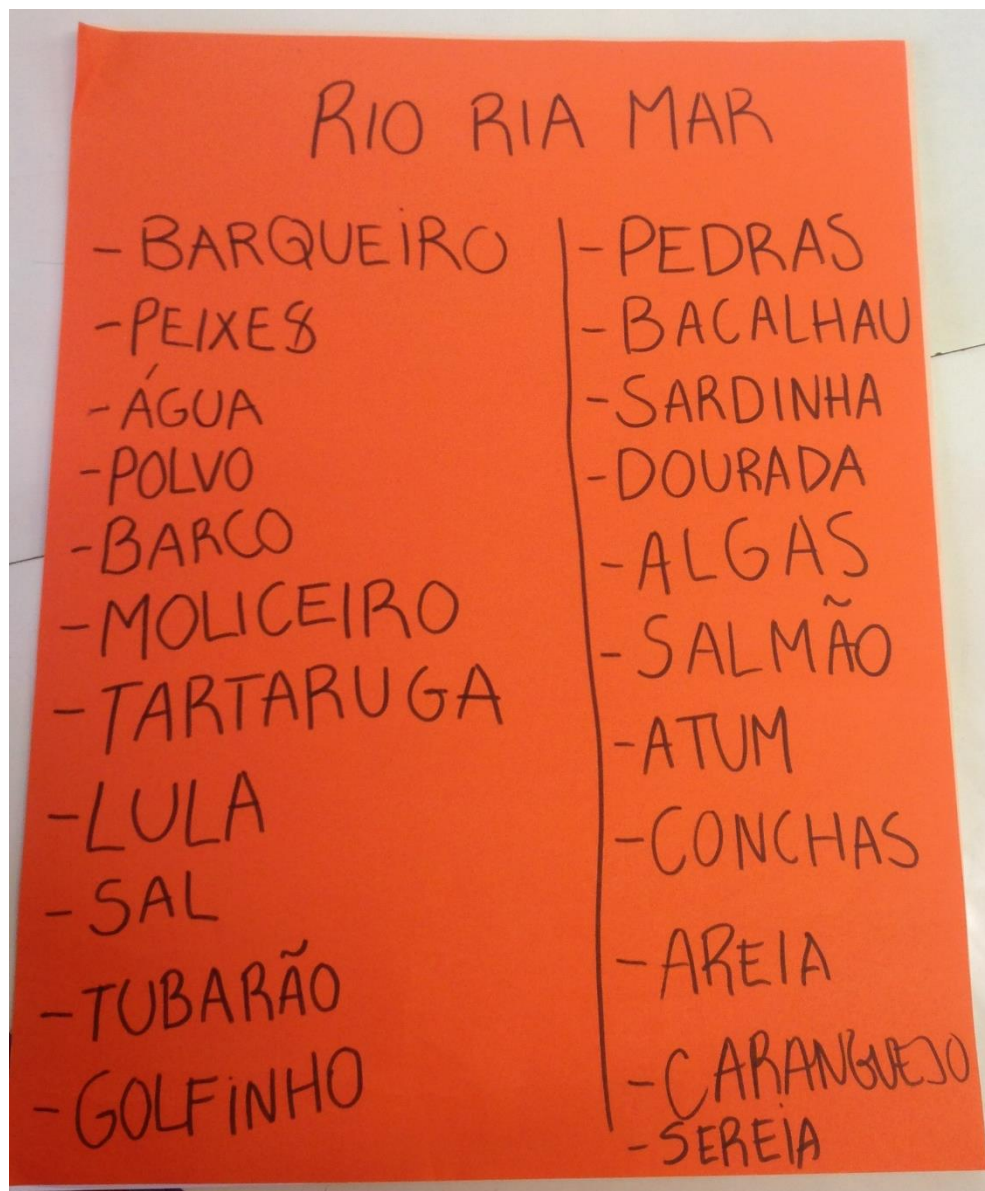 RIO RIA MAR
- BARQUEIRO
- PEIXES
- ÁGUA
- POLVO
- BARCO
- MOLICEIRO
- TARTARUGA
- LULA
- SAL
- TUBARÃO
- GOLFINHO
- PEDRAS
- BACALHAU
- SARDINHA
- DOURADA
- ALGAS
- SALMÃO
- ATUM
- CONCHAS
- AREIA
- CARANGUEJO
- SEREIA